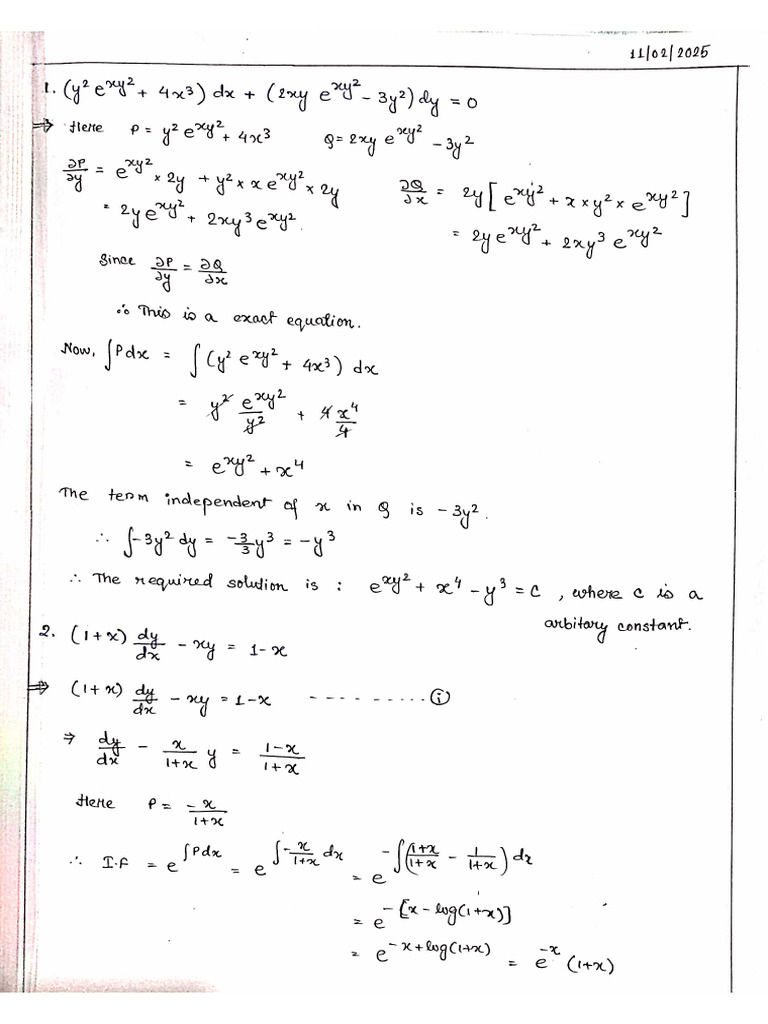 11/02/2025
1. (y² e^{xy²} + 4x³) dx + (2xy e^{xy²} - 3y²) dy = 0
⇒ Here P = y² e^{xy²} + 4x³ Q = 2xy e^{xy²} - 3y²
∂P/∂y = e^{xy²} × 2y + y² × x e^{xy²} × 2y ∂Q/∂x = 2y [e^{xy²} + x × y² × e^{xy²}]
= 2y e^{xy²} + 2xy³ e^{xy²}. = 2y e^{xy²} + 2xy³ e^{xy²}
Since ∂P/∂y = ∂Q/∂x
∴ This is a exact equation.
Now, ∫P dx = ∫(y² e^{xy²} + 4x³) dx
= y² e^{xy²}/y² + 4x⁴/4
= e^{xy²} + x⁴
The term independent of x in Q is -3y².
∴ ∫-3y² dy = -3/3 y³ = -y³
∴ The required solution is : e^{xy²} + x⁴ - y³ = C , where C is a
arbitary constant.
2. (1+x) dy/dx - xy = 1-x
⇒ (1+x) dy/dx - xy = 1-x ---------- ⓘ
⇒ dy/dx - x/(1+x) y = (1-x)/(1+x)
Here P = -x/(1+x)
∴ I.F = e^{∫P dx} = e^{∫-x/(1+x) dx} = e^{-∫((1+x)/(1+x) - 1/(1+x)) dx}
= e^{-[x - log(1+x)]}
= e^{-x + log(1+x)} = e^{-x} (1+x)